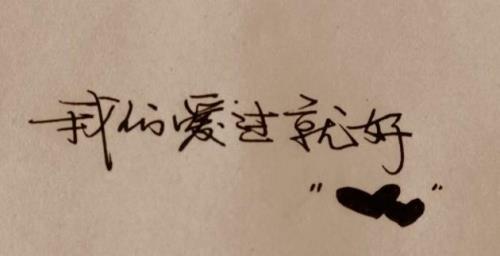 我们爱过就好
"♥♥"